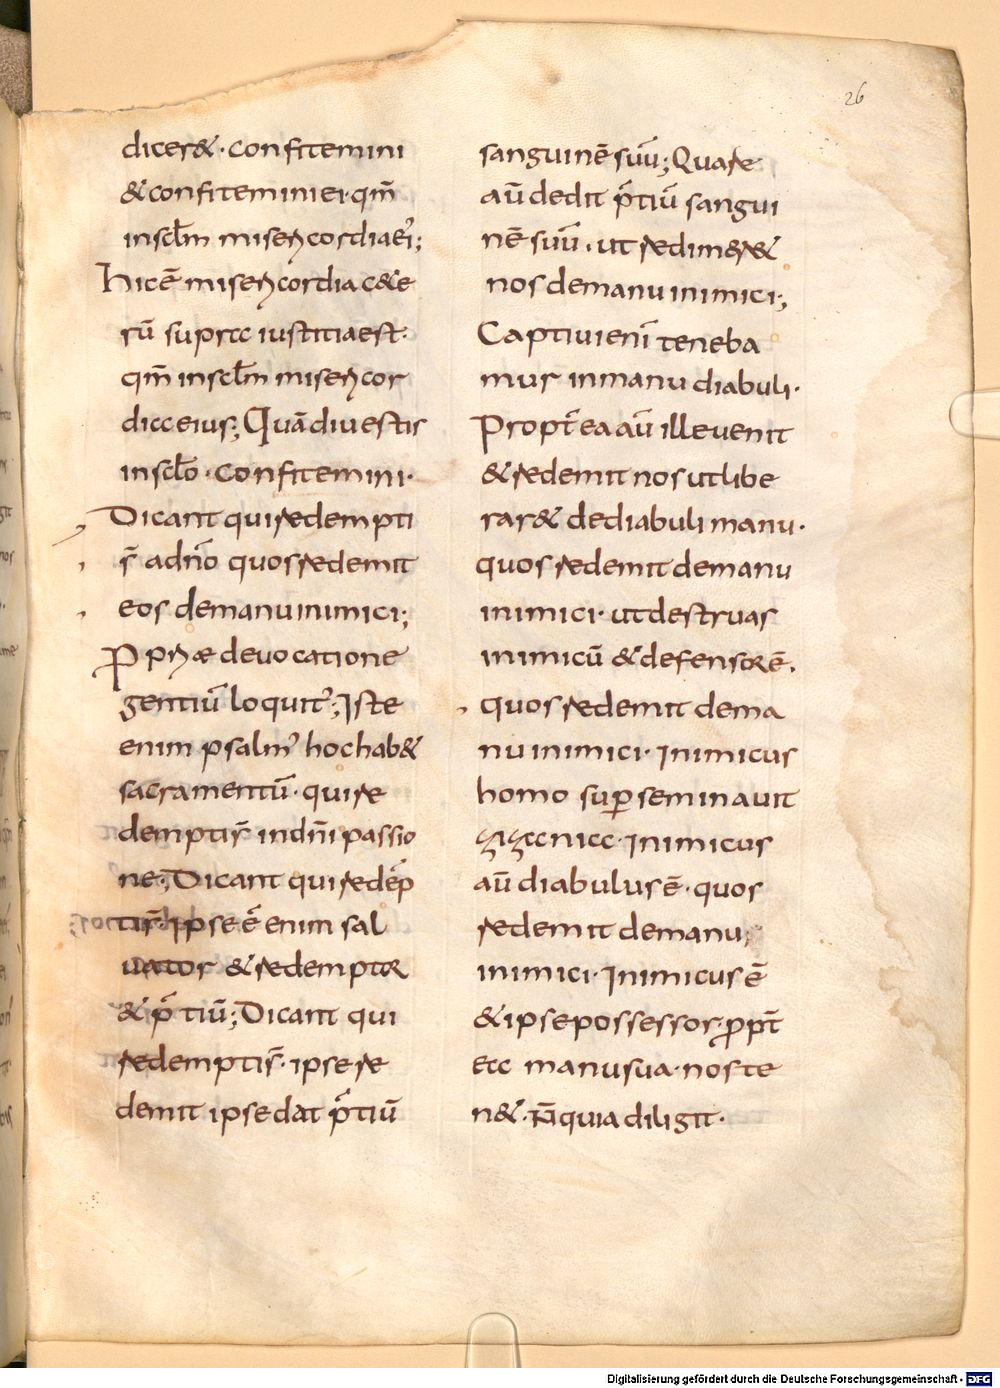 26
dicer&·confitemini
&confiteminiei·qm̄
inscl̄m misericordiaei';
hicē misericordia c&e
rū supra iustitiaest·
qm̄ inscl̄m misericor
diaeius; Quādiuestis
inscl̄o·confitemini·
Dicant quiredempti
s̄ adn̄o quosredemit
eos demanuinimici;
Ppriæ deuocatione
gentiū loquit'; Iste
enim psalm' hochab&
sacramentū·quire
demptis̄ indn̄i passio
ne; Dicant quiredēp
tis̄·Ipse ē enim sal
uator &redemptor
&p̄tiū; Dicant qui
redemptis̄·ipsere
demit ipsedat p̄tiū
sanguinē suū; Quare
aū dedit p̄tiū sangui
nē suū·ut redimer&
nos demanu inimici;
Captiuienī teneba
mur inmanu diabuli·
Propt̄ea aū illeuenit
&redemit nos utlibe
rar& dediabuli manu·
quos redemit demanu
inimici·utdestruas
inimicū &defensorē·
quos redemit dema
nuinimici·Inimicus
homo sup̄seminauit
zizania·Inimicus
aū diabulus ē·quos
redemit demanu
inimici·Inimicus ē
&ipsepossessor·ppt̄
ea manusua·noste
n&·N̄quia diligit·
Digitalisierung gefördert durch die Deutsche Forschungsgemeinschaft · DFG